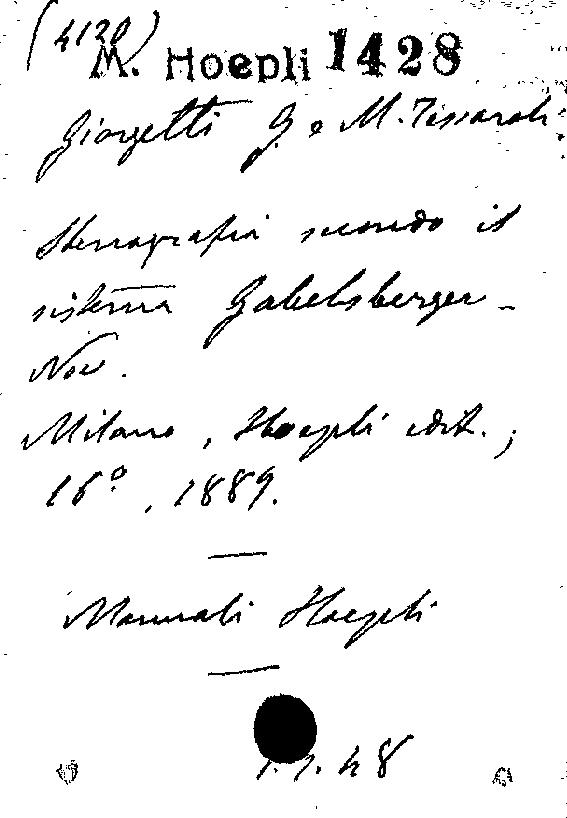 (4120)
M. Hoepli 1428
Giorgetti G. e M. Tessaroli
Stenografia secondo il
sistema Gabelsberger-
Noe.
Milano, Hoepli edit.;
16°, 1889.
Manuali Hoepli
48